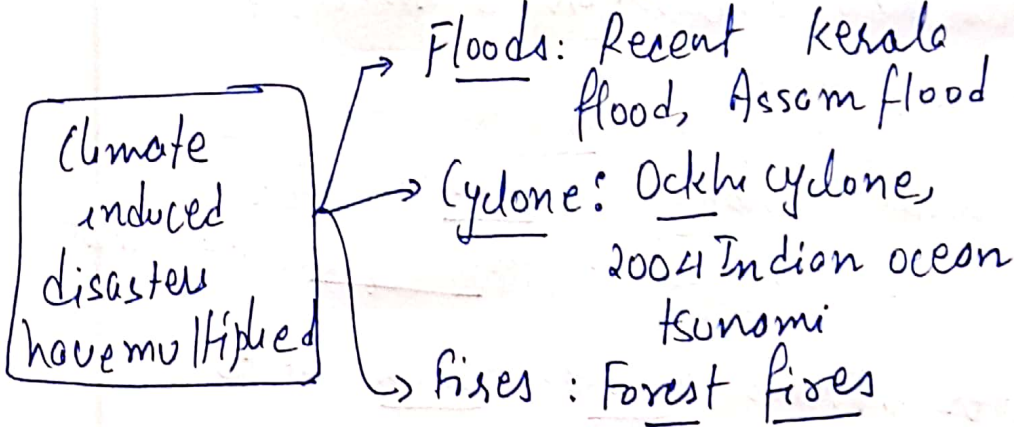 Climate
induced
disasters
have multiplied
Floods: Recent Kerala
flood, Assam flood
Cyclone: Ockhi cyclone,
2004 Indian ocean
tsunami
fires : Forest fires